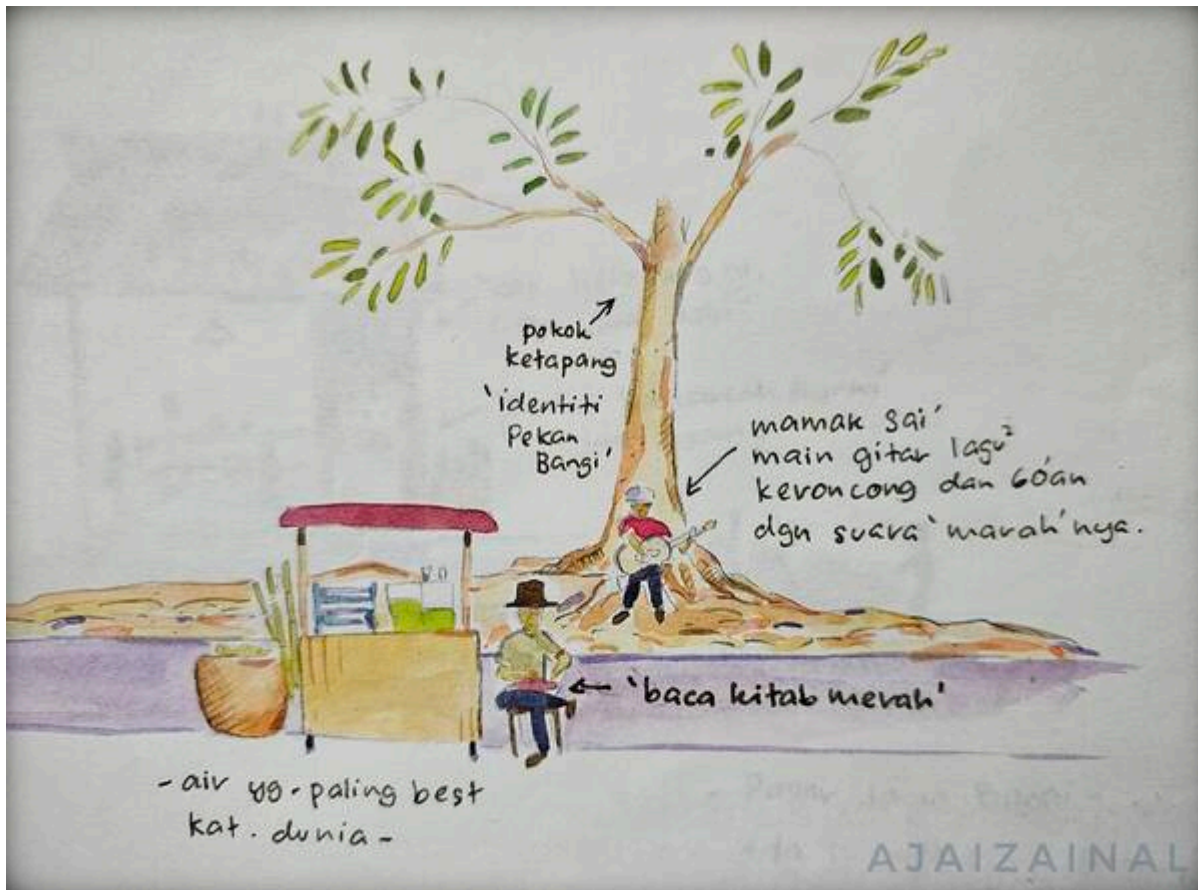 pokok
ketapang
'identiti
Pekan
Bangi'
mamak sai'
main gitar lagu²
keroncong dan 60'an
dgn suara 'marah'nya.
'baca kitab merah'
- air yg. paling best
kat. dunia -
AJAIZAINAL